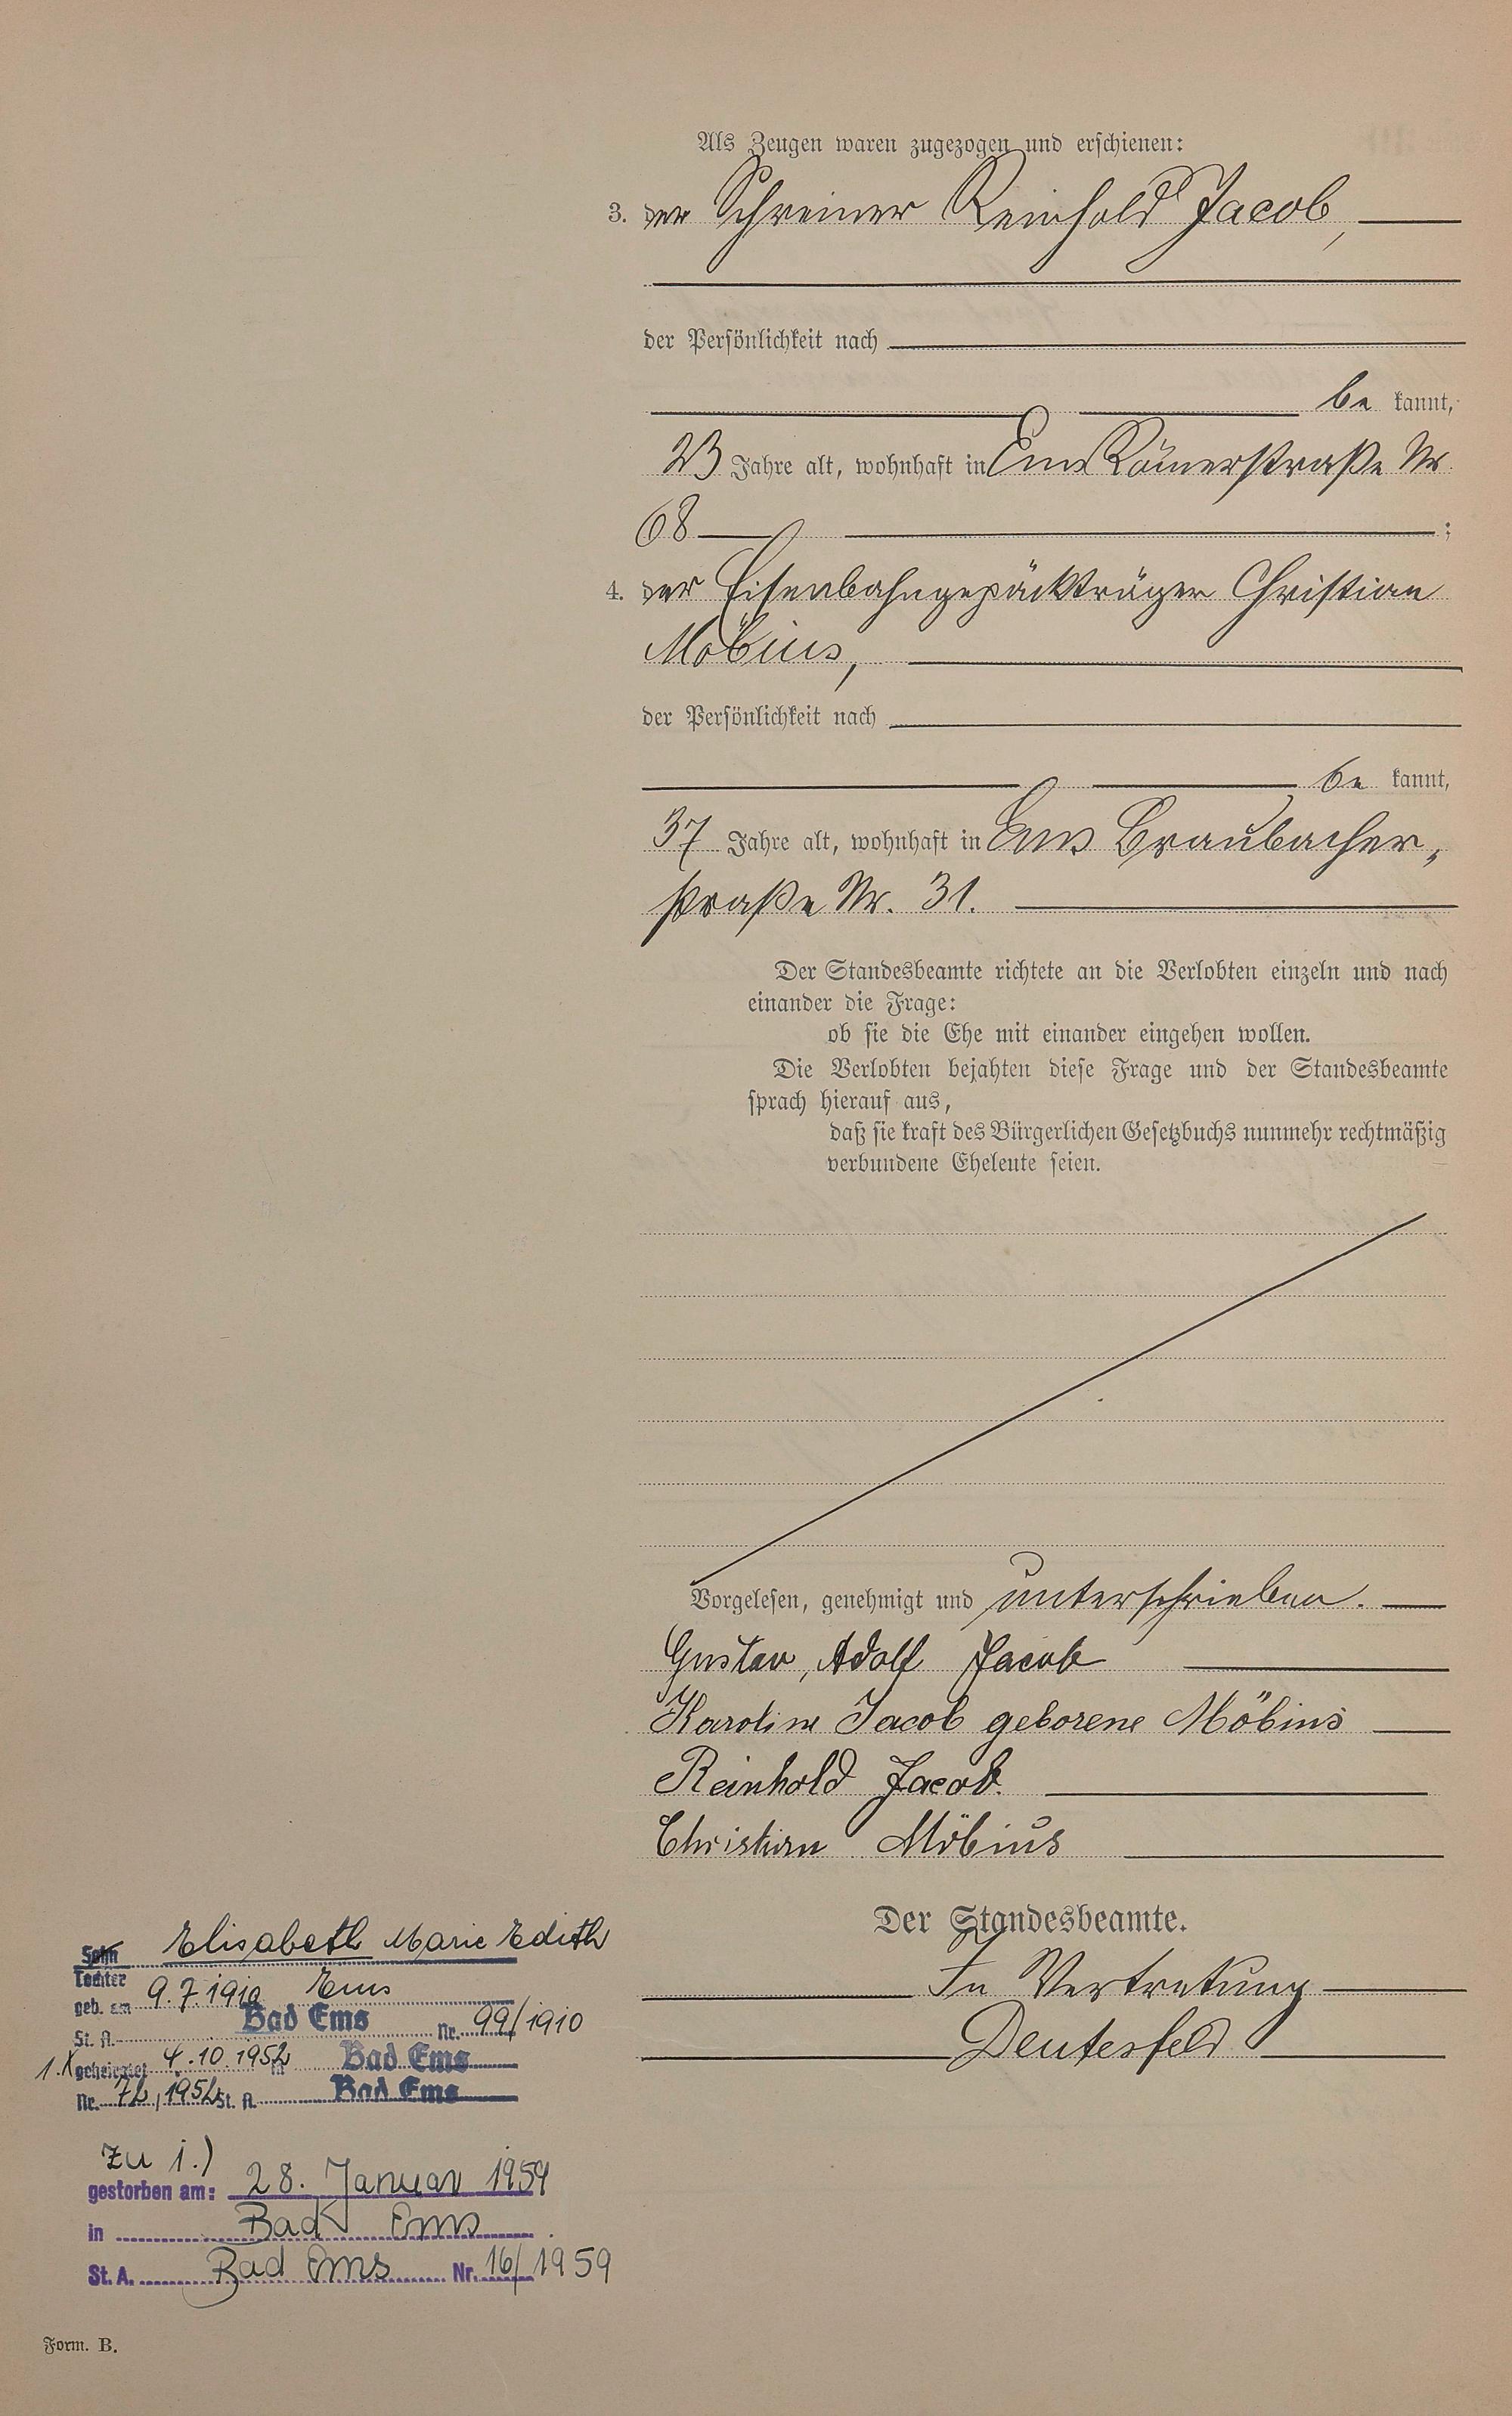 Als Zeugen waren zugezogen und erschienen:
3. der Schreiner Reinhold Jacob,
der Persönlichkeit nach
be kannt,
23 Jahre alt, wohnhaft in Ems Römerstraße Nr.
68 ;
4. der Eisenbahngepäckträger Christian
Möbius,
der Persönlichkeit nach
be kannt,
37 Jahre alt, wohnhaft in Ems Braubacher-
straße Nr. 31.
Der Standesbeamte richtete an die Verlobten einzeln und nach
einander die Frage:
ob sie die Ehe mit einander eingehen wollen.
Die Verlobten bejahten diese Frage und der Standesbeamte
sprach hierauf aus,
daß sie kraft des Bürgerlichen Gesetzbuchs nunmehr rechtmäßig
verbundene Eheleute seien.
Vorgelesen, genehmigt und unterschrieben.
Gustav, Adolf Jacob
Karoline Jacob geborene Möbius
Reinhold Jacob.
Christian Möbius
Der Standesbeamte.
In Vertretung
Deutesfeld
Sohn Elisabeth Marie Edith
Tochter
geb. am 9.7.1910 Ems
St. A. Bad Ems Nr. 99/1910
1.X geheiratet 4.10.1952 in Bad Ems
Nr. 72/1952 St. A. Bad Ems
zu 1.)
gestorben am: 28. Januar 1959
in Bad Ems
St. A. Bad Ems Nr. 16/1959
Form. B.